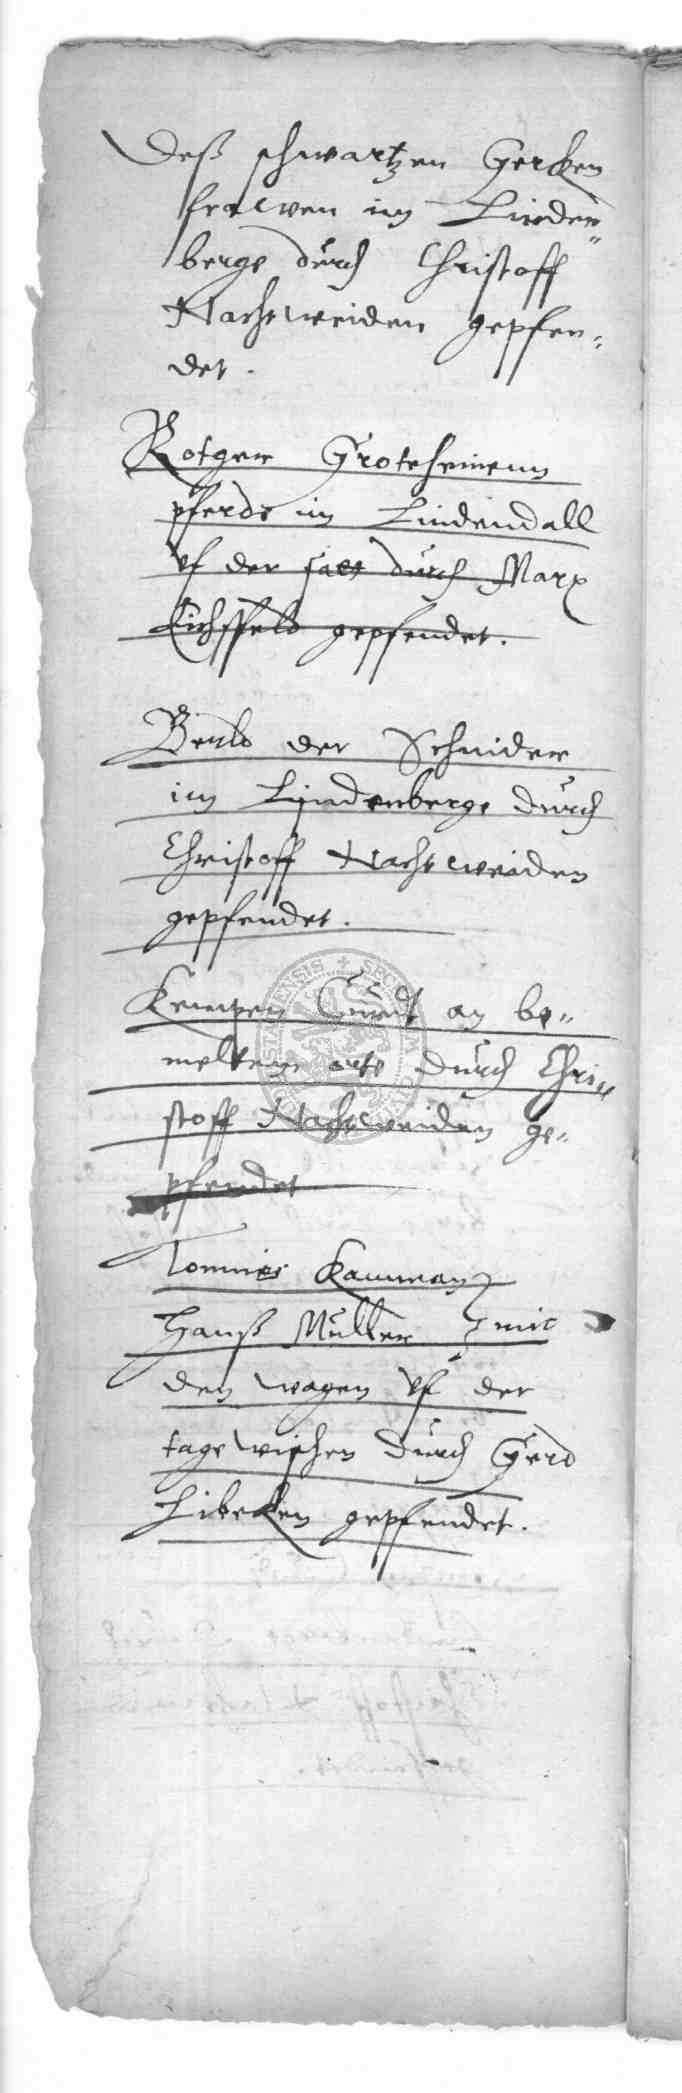 Deß schwartzen Gercken
frawen im Linden„
berge durch Christoff
Nachtweiden gepfen„
det.
Rotger Grotehennen
pferde im Lindendall
vf der saet durch Marx
Eichsfeld gepfendet.
der Schnider
im Lindenberge durch
Christoff Nachtweiden
gepfendet.
Kempen Curdt an be„
melten orte durch Chri„
stoff Nachtweiden ge„
pfendet
Tonnies Kauman
Hanß Muller mit
den wagen vf der
tagewischen durch Gerd
Libecken gepfendet.